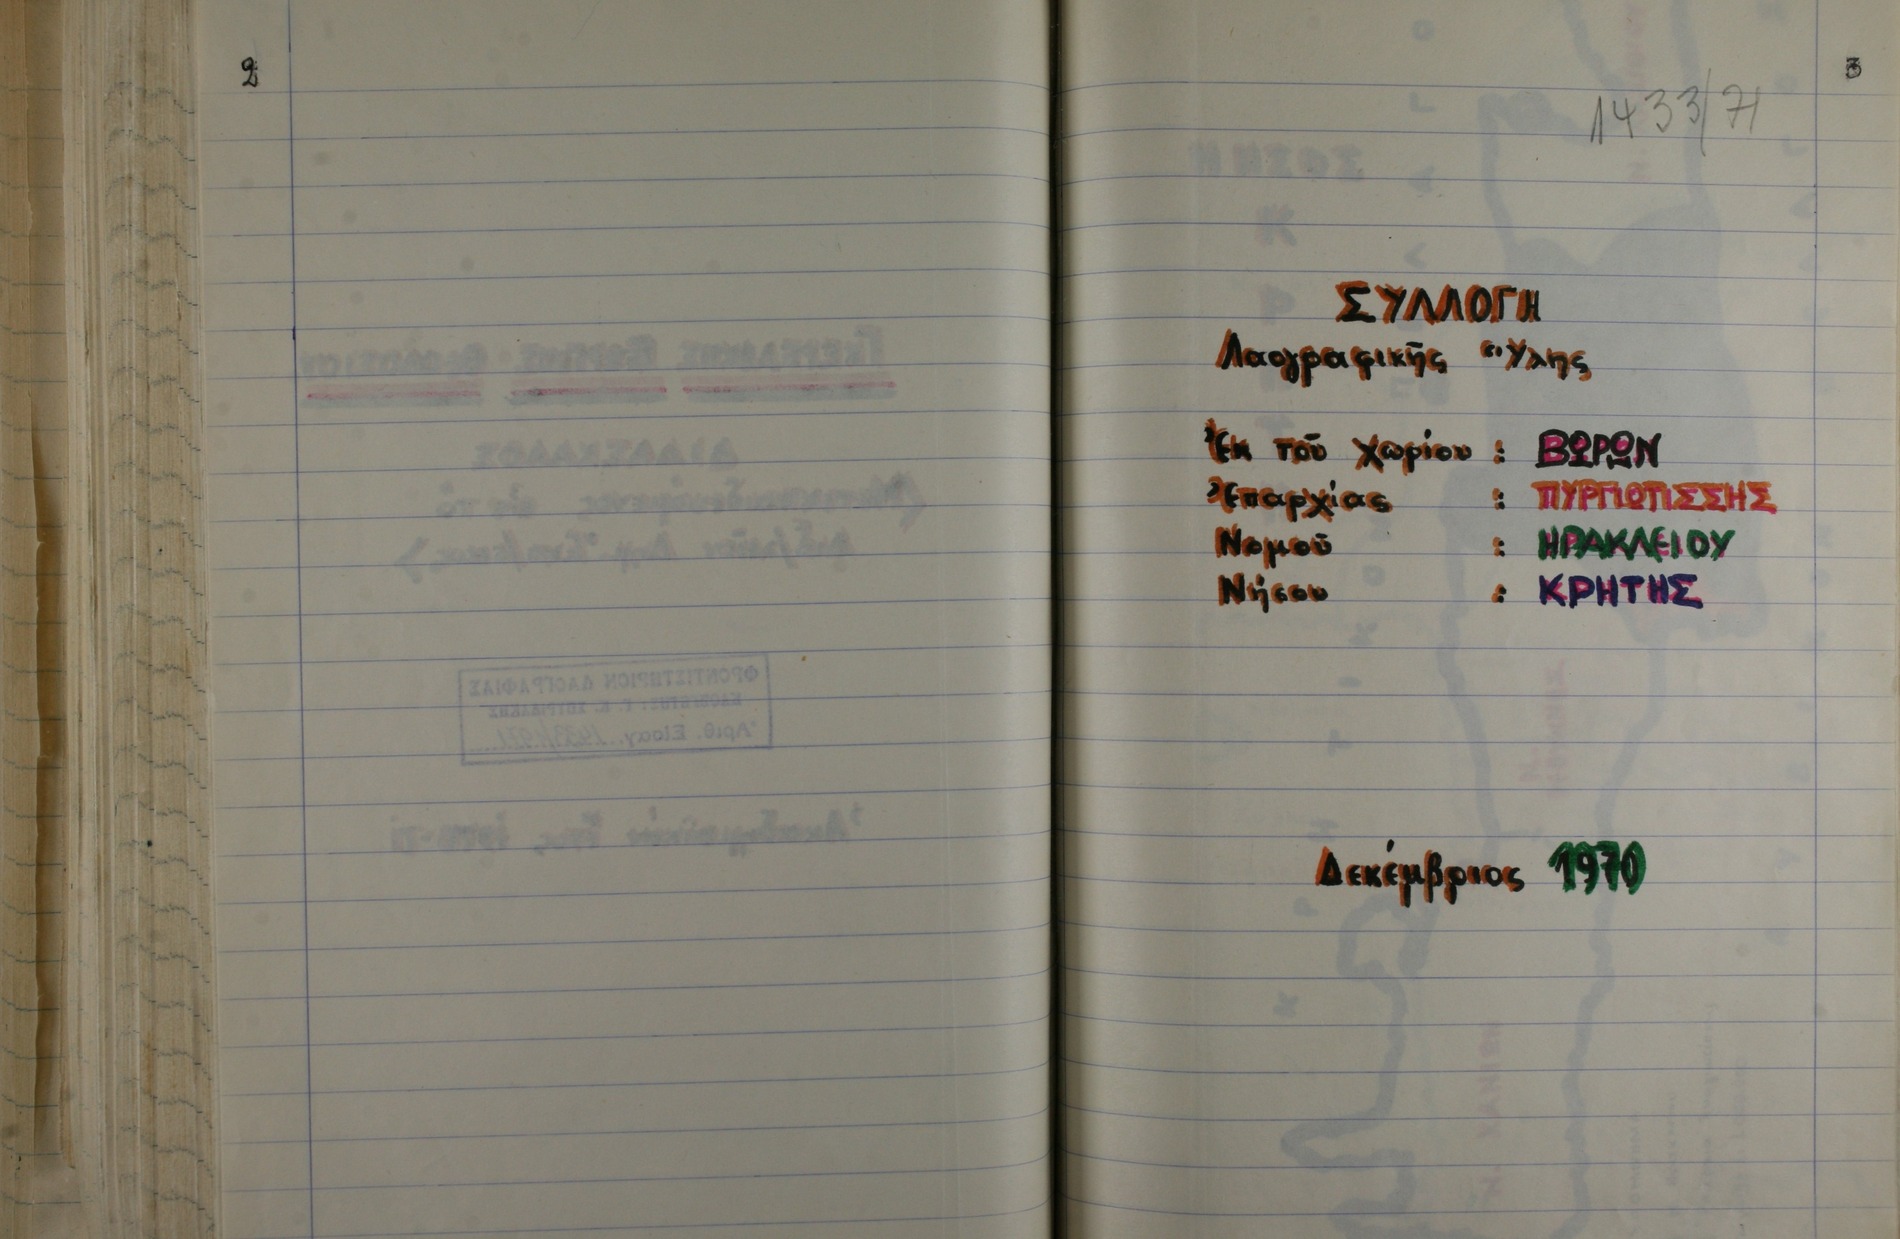 2
3
1433/71
ΣΥΛΛΟΓΗ
Λαογραφικῆς Ὕλης
Ἐκ τοῦ χωρίου : ΒΩΡΩΝ
Ἐπαρχίας : ΠΥΡΓΙΩΤΙΣΣΗΣ
Νομοῦ : ΗΡΑΚΛΕΙΟΥ
Νήσου : ΚΡΗΤΗΣ
Δεκέμβριος 1970